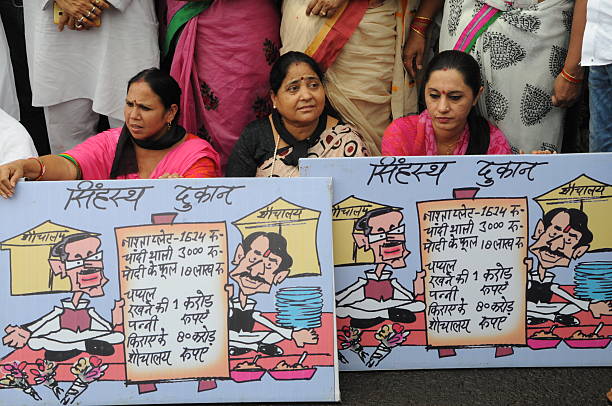 सिंहस्थ दुकान
शौचालय
शौचालय
नाश्ता प्लेट-1624 रु-
चांदी थाली 3000 रु-
चांदी के फूल 18 लाख रु
चप्पल
रखने की 1 करोड़
पन्नी रुपए
किराए के 80 करोड़
शौचालय रुपए
सिंहस्थ दुकान
शौचालय
शौचालय
नाश्ता प्लेट-1624 रु-
चांदी थाली 3000 रु-
चांदी के फूल 18 लाख रु
चप्पल
रखने की 1 करोड़
पन्नी रुपए
किराए के 80 करोड़
शौचालय रुपए